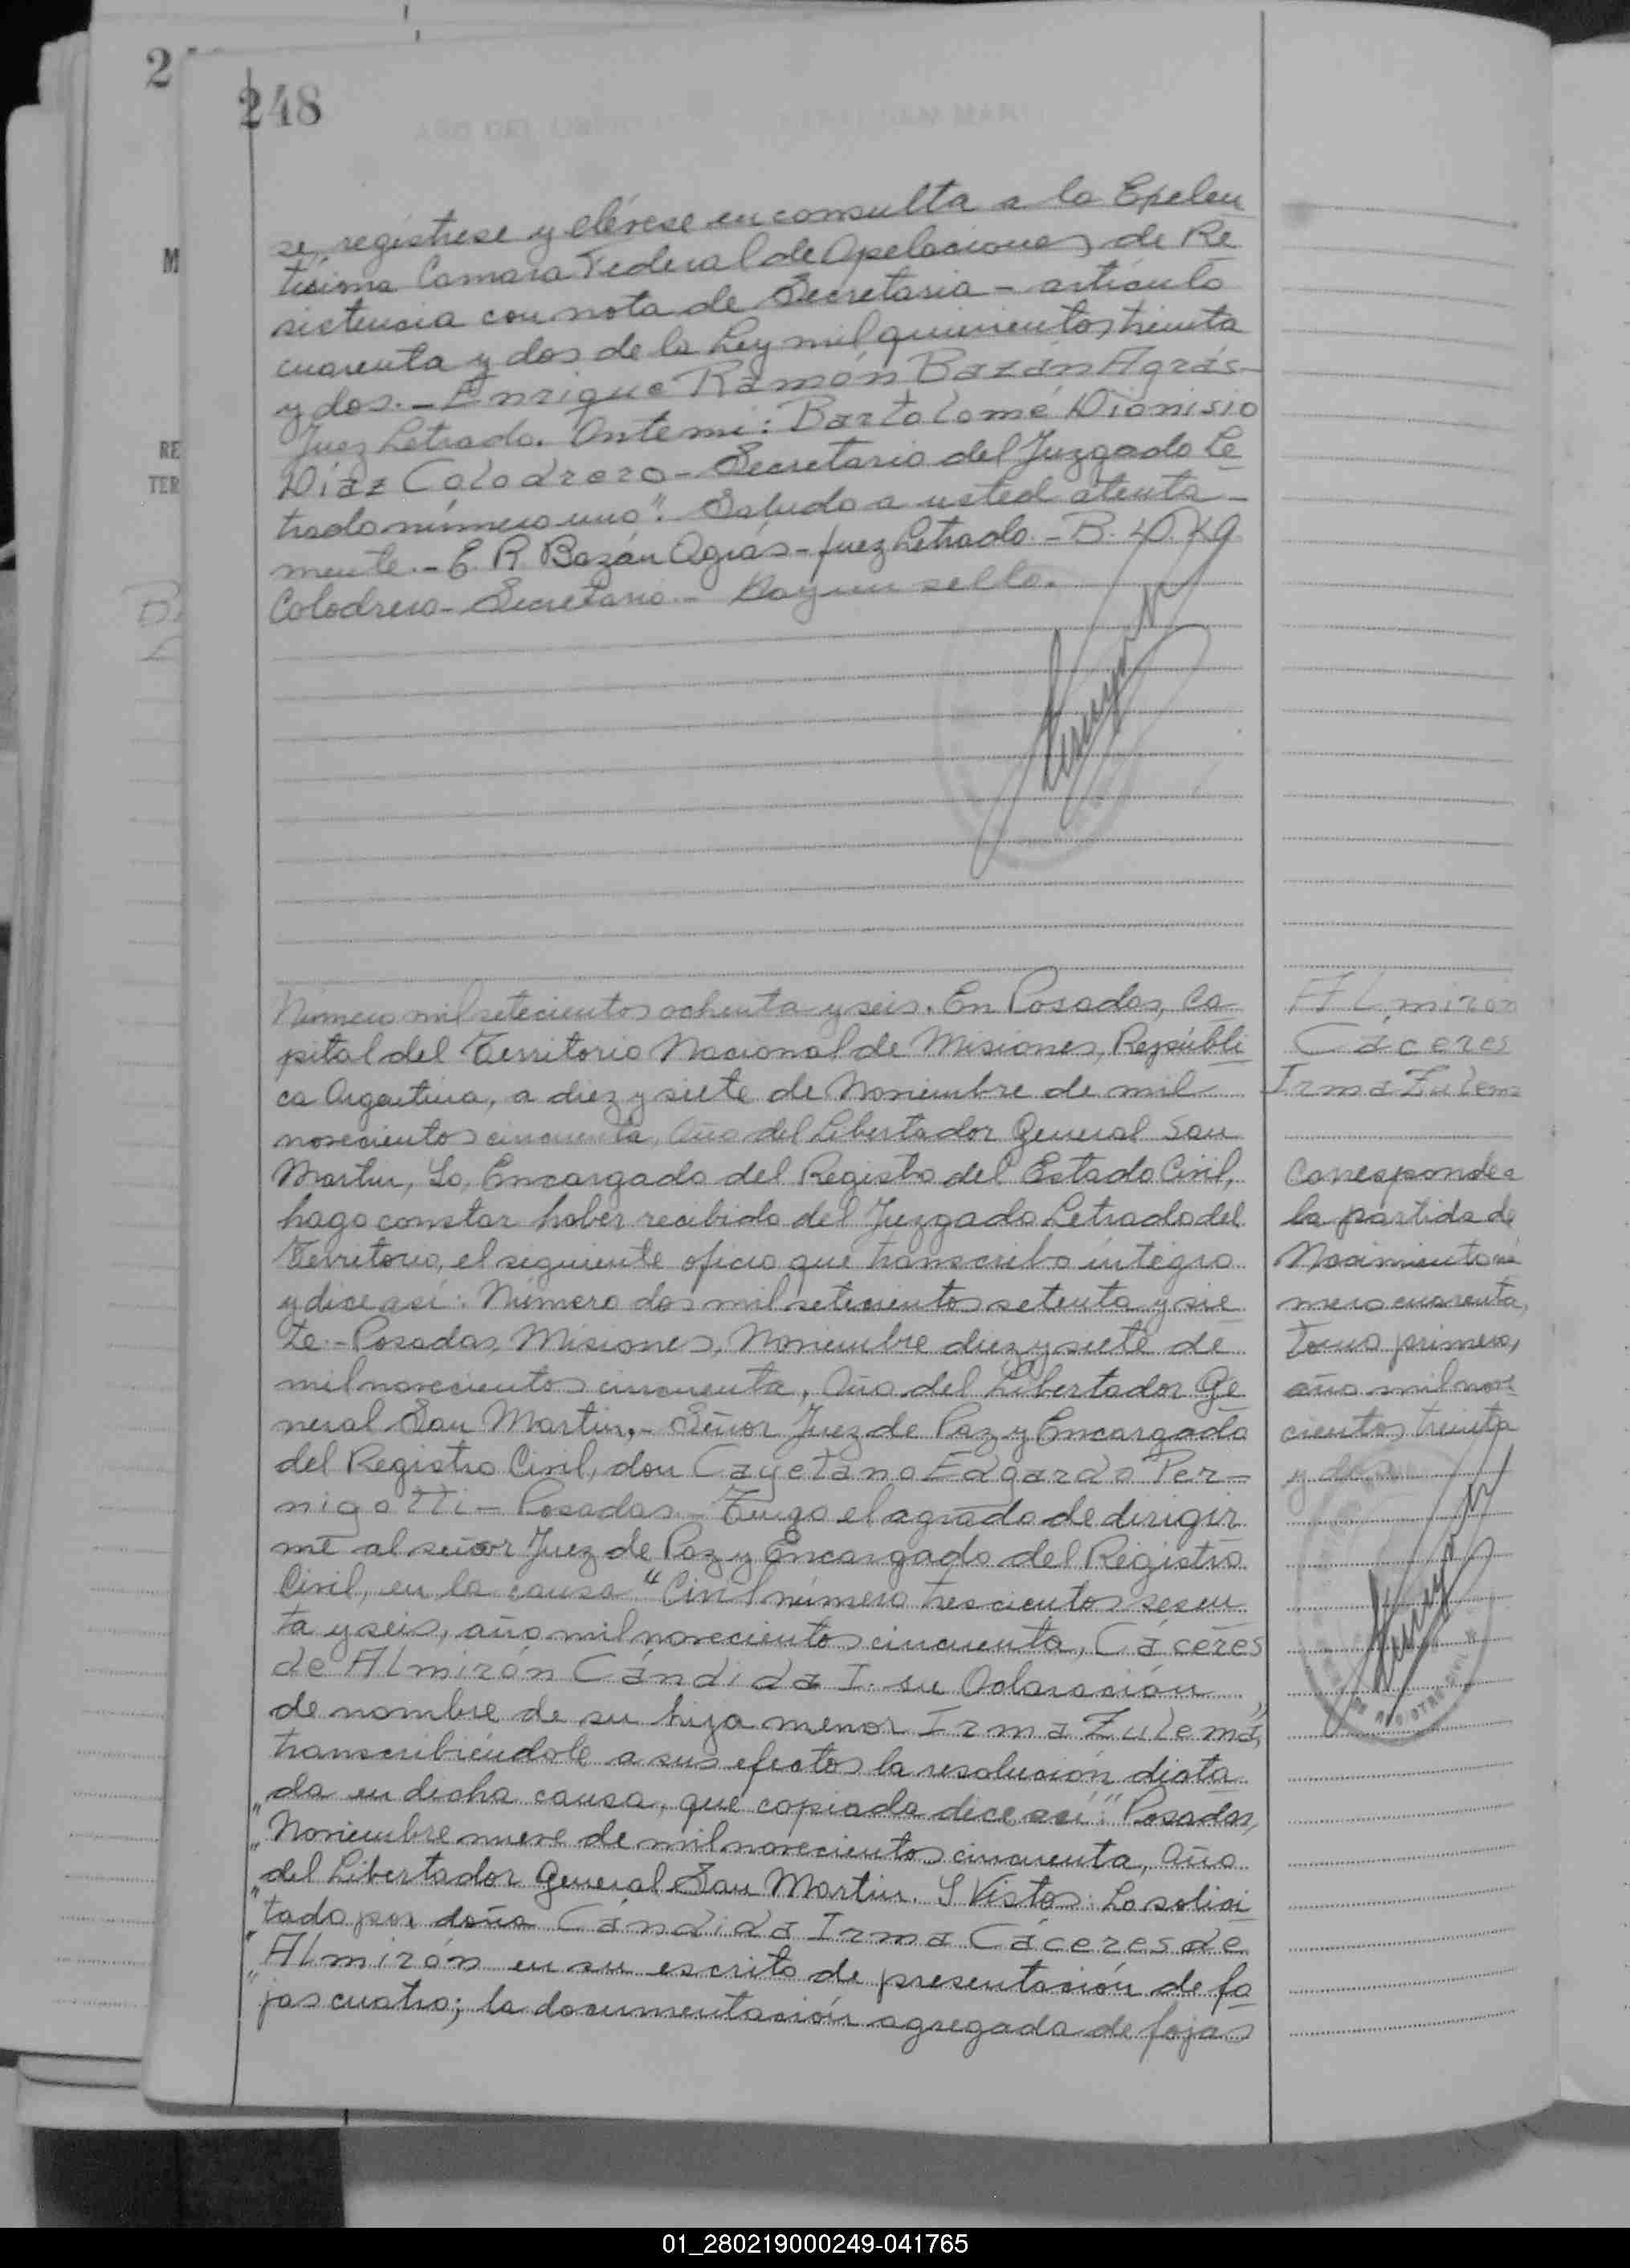 248
se, regístrese y elévese en consulta a la Exelen
tísima Camara Federal de Apelaciones de Re
sistencia con nota de Secretaria - artículo
cuarenta y dos de la Ley mil quinientos treinta
y dos. - Enrique Ramón Bazán Agrás -
Juez Letrado. Ante mi: Bartolomé Dionisio
Díaz Colodrero - Secretario del Juzgado Le
trado número uno". Saludo a usted atenta -
mente. - E. R. Bazán Agrás - Juez Letrado. - B. D.
Colodrero - Secretario. - Hay un sello.
Número mil setecientos ochenta y seis. En Posadas, Ca
pital del Territorio Nacional de Misiones, Repúbli
ca Argentina, a diez y siete de Noviembre de mil
novecientos cincuenta, Año del Libertador General San
Martin, Yo, Encargado del Registro del Estado Civil,
hago constar haber recibido del Juzgado Letrado del
Territorio, el siguiente oficio que transcribo integro
y dice asi: Número dos mil setecientos setenta y sie
te. - Posadas, Misiones, Noviembre diez y siete de
mil novecientos cincuenta, Año del Libertador Ge
neral San Martin, - Señor Juez de Paz y Encargado
del Registro Civil, don Cayetano Edgardo Per -
nigotti - Posadas - Tengo el agrado de dirigir
me al señor Juez de Paz y Encargado del Registro
Civil, en la causa "Civil número trescientos sesen
ta y seis, año mil novecientos cincuenta, Cáceres
de Almirón Cándida I. su Aclaración
de nombre de su hija menor Irma Zulema",
transcribiéndole a sus efectos la resolución dicta
da en dicha causa, que copiada dice asi: "Posadas,
"Noviembre nueve de mil novecientos cincuenta, Año
"del Libertador General San Martin. Y Vistos: Lo solici
"tado por doña Cándida Irma Cáceres de
"Almirón en su escrito de presentación de fo
"jas cuatro; la documentación agregada de fojas
Almirón
Cáceres
Irma Zulema
Corresponde a
la partida de
Nacimiento nú
mero cuarenta,
tomo primero,
año mil nove
cientos treinta
y dos.
REGISTRO CIVIL
2
M
RE
TER
01_280219000249-041765